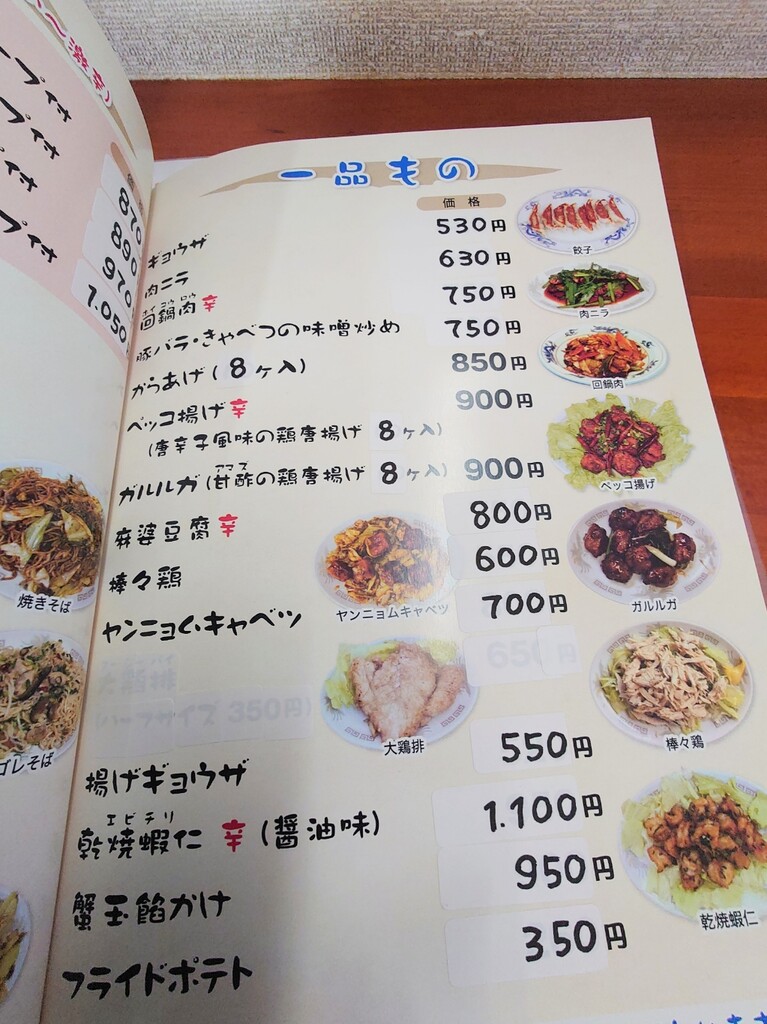 激辛)
ープ付
プ付
プ付
プ付
870
890
970
1.050
一品もの
価格
ギョウザ 530円
肉ニラ 630円
ホイコウロウ
回鍋肉 辛 750円
豚バラ・きゃべつの味噌炒め 750円
からあげ(8ヶ入) 850円
ペッコ揚げ 辛 900円
(唐辛子風味の鶏唐揚げ 8ヶ入)
アマズ
ガルルガ(甘酢の鶏唐揚げ 8ヶ入) 900円
麻婆豆腐 辛 800円
棒々鶏 600円
ヤンニョムキャベツ 700円
大鶏排 650円
(ハーフサイズ 350円)
揚げギョウザ 550円
エビチリ
乾焼蝦仁 辛 (醤油味) 1.100円
蟹玉餡かけ 950円
フライドポテト 350円
餃子
肉ニラ
回鍋肉
ペッコ揚げ
ヤンニョムキャベツ
ガルルガ
大鶏排
棒々鶏
乾焼蝦仁
焼きそば
ゴレそば